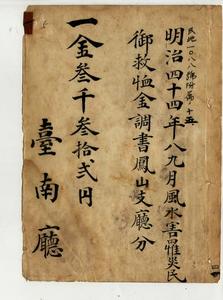 民地一〇八八號附屬ノ十五
明治四十四年八九月風水害罹災民
御救恤金調書鳳山支廳分
一金叄千叄拾貳円
臺南廳